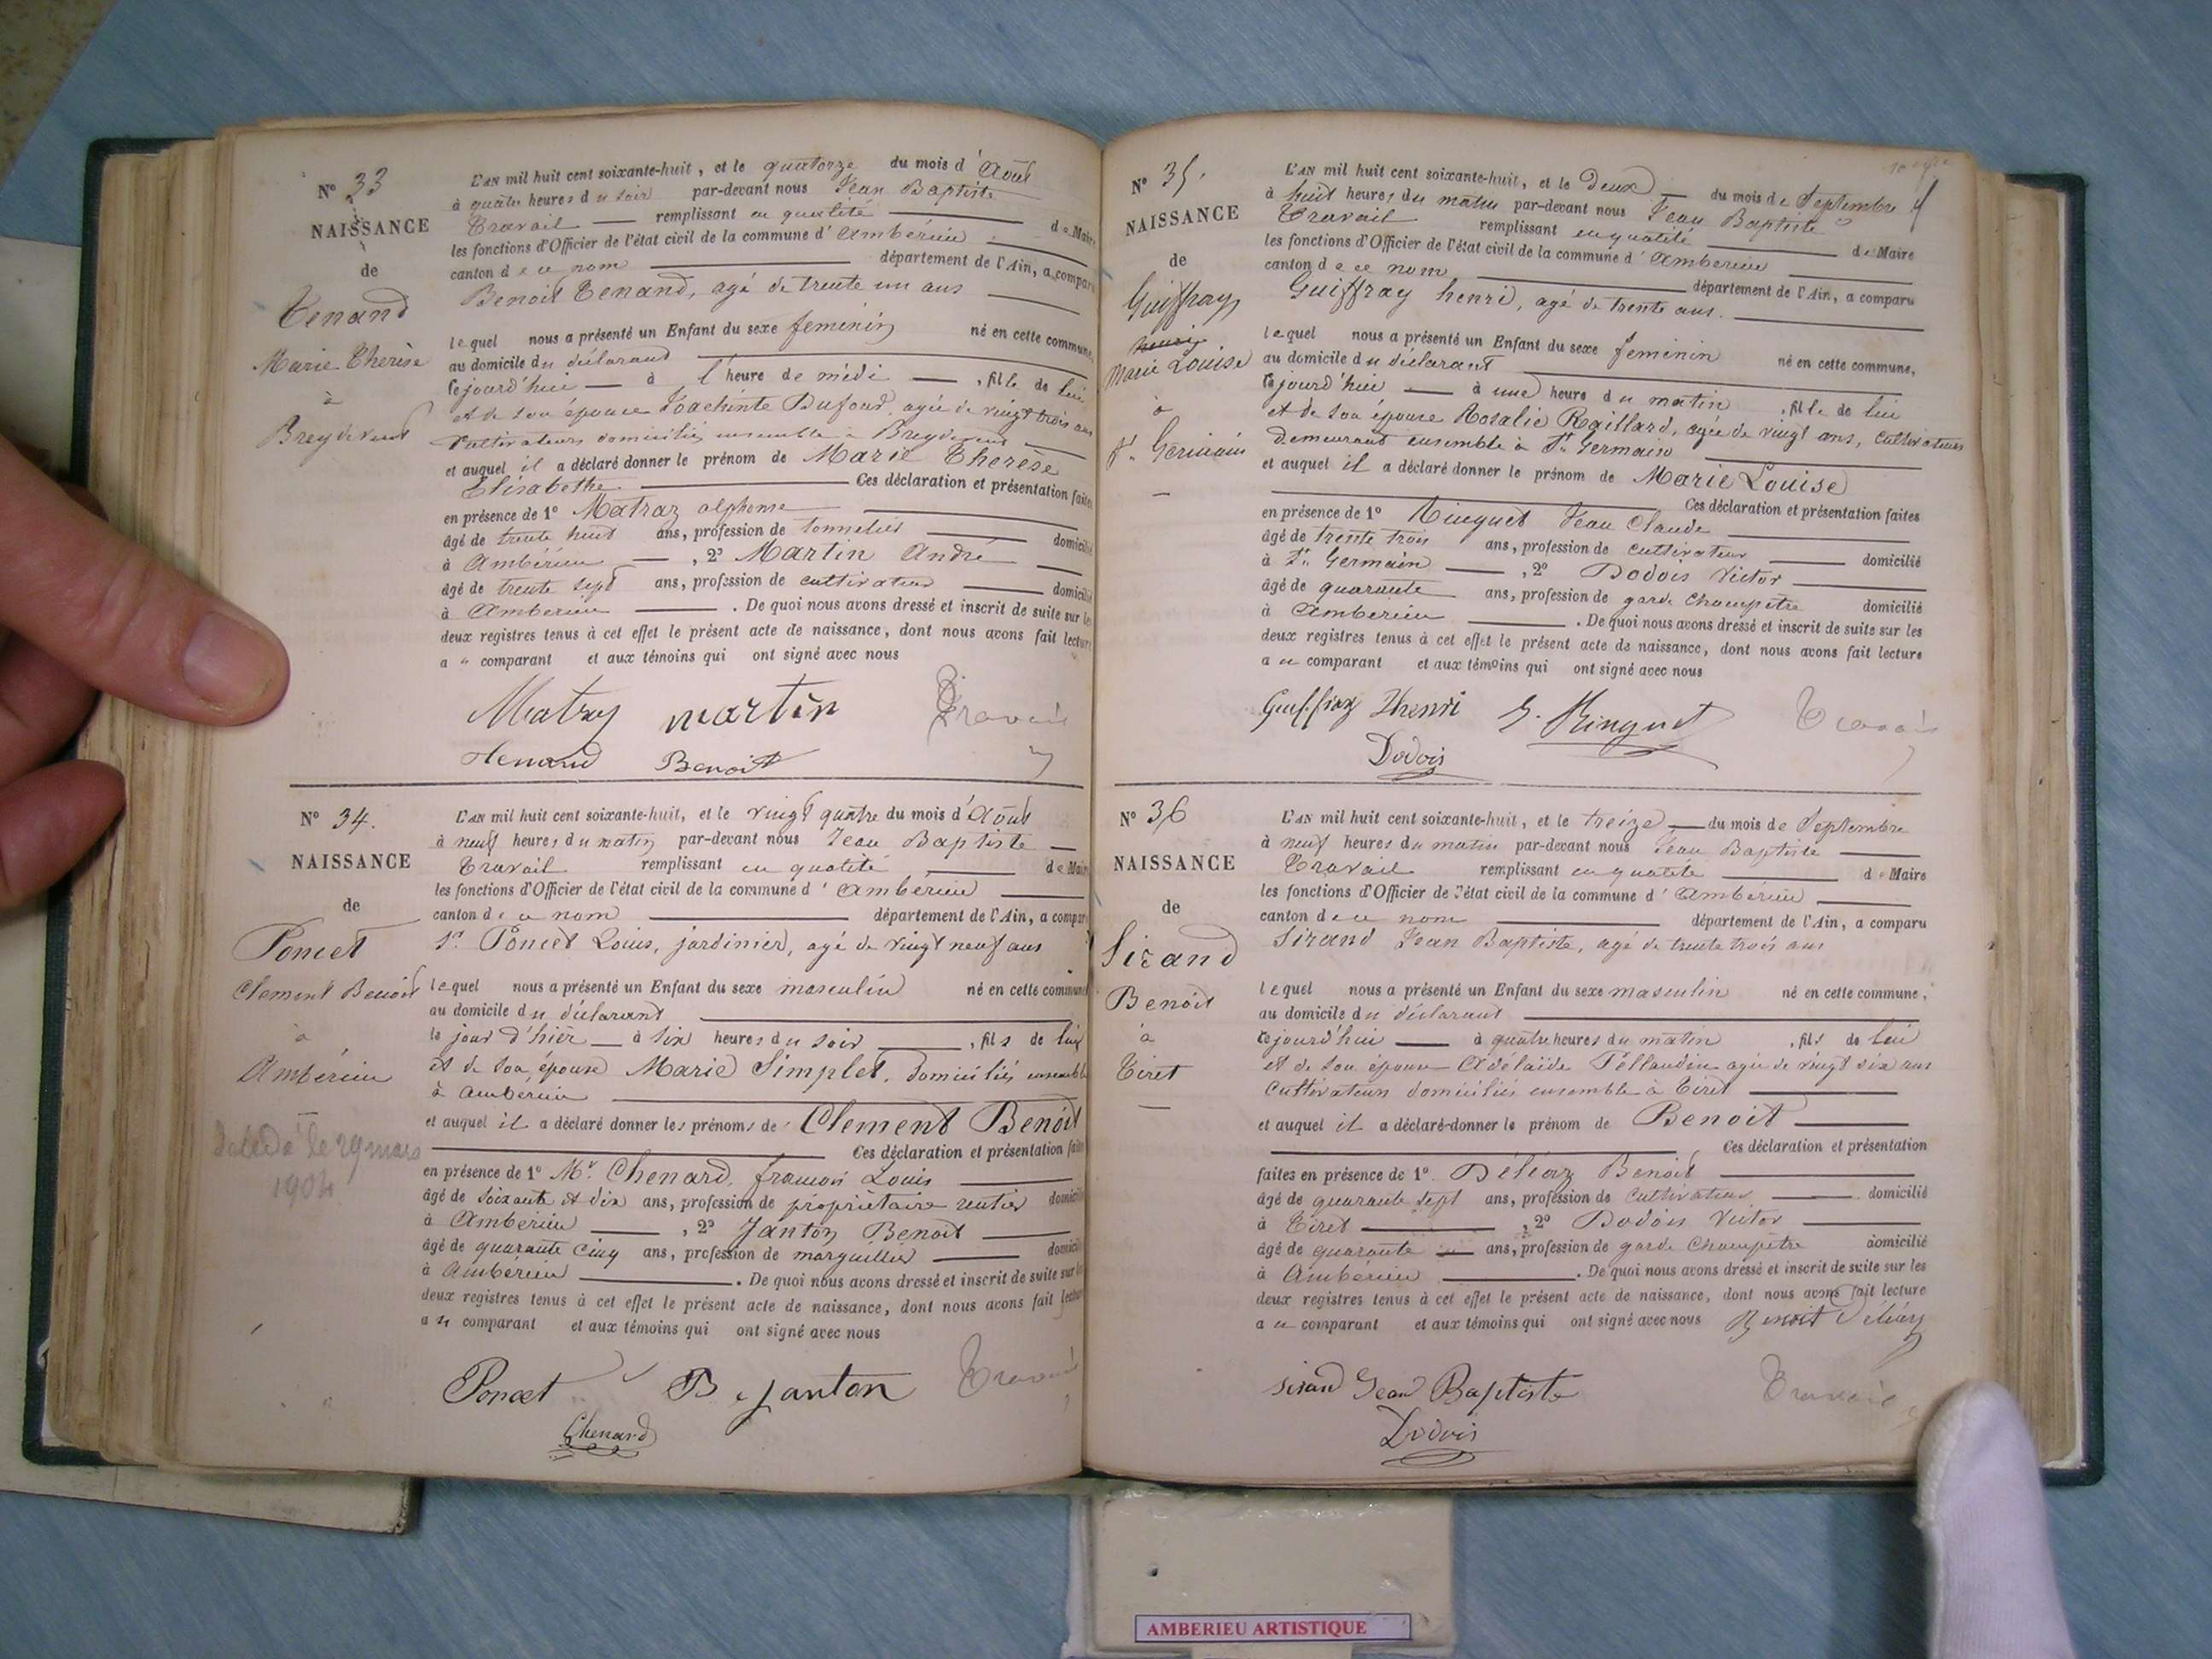 N° 33
NAISSANCE
de
Tenand
Marie Therèse
à
Breydevent
L'AN mil huit cent soixante-huit, et le quatorze du mois d'Août
à quatre heures du soir par-devant nous Jean Baptiste
Travail remplissant en qualité de Maire
les fonctions d'Officier de l'état civil de la commune d'Ambérieu
canton de ce nom département de l'Ain, a comparu
Benoit Tenand, agé de trente un ans
lequel nous a présenté un Enfant du sexe feminin né en cette commune,
au domicile du déclarant
cejourd'hui à l'heure de midi, fille de lui
et de son épouse Joachinte Dufour, agée de vingt trois ans
Cultivateurs domiciliés ensemble à Breydevent
et auquel il a déclaré donner le prénom de Marie Therèse
Elisabethe Ces déclaration et présentation faites
en présence de 1° Matraz alphonse
âgé de trente huit ans, profession de tonnelier domicilié
à Ambérieu, 2° Martin André
âgé de trente sept ans, profession de cultivateur domicilié
à Amberieu. De quoi nous avons dressé et inscrit de suite sur les
deux registres tenus à cet effet le présent acte de naissance, dont nous avons fait lecture
au comparant et aux témoins qui ont signé avec nous
Matraz martin Travail
Tenand Benoit
N° 34.
NAISSANCE
de
Poncet
Clement Benoit
à
Ambérieu
décédé le 29 mars
1904
L'AN mil huit cent soixante-huit, et le vingt quatre du mois d'Août
à neuf heures du matin par-devant nous Jean Baptiste
Travail remplissant en qualité de Maire
les fonctions d'Officier de l'état civil de la commune d'Ambérieu
canton de ce nom département de l'Ain, a comparu
Sr Poncet Louis, jardinier, agé de vingt neuf ans
lequel nous a présenté un Enfant du sexe masculin né en cette commune
au domicile du déclarant
le jour d'hier à six heures du soir, fils de lui
et de son épouse Marie Simplet, domiciliés ensemble
à Amberieu
et auquel il a déclaré donner les prénoms de Clement Benoit
Ces déclaration et présentation faites
en présence de 1° Mr Chenard, francois Louis
âgé de soixante et dix ans, profession de propriétaire rentier domicilié
à Amberieu, 2° Janton Benoit
âgé de quarante cinq ans, profession de marguillier domicilié
à Ambérieu. De quoi nous avons dressé et inscrit de suite sur les
deux registres tenus à cet effet le présent acte de naissance, dont nous avons fait lecture
au comparant et aux témoins qui ont signé avec nous
Poncet B Janton Travail
Chenard
N° 35.
NAISSANCE
de
Guiffray
henri
Marie Louise
à
St. Germain
L'AN mil huit cent soixante-huit, et le Deux du mois de Septembre
à huit heures du matin par-devant nous Jean Baptiste
Travail remplissant en qualité de Maire
les fonctions d'Officier de l'état civil de la commune d'Amberieu
canton de ce nom département de l'Ain, a comparu
Guiffray henri, agé de trente ans.
lequel nous a présenté un Enfant du sexe feminin né en cette commune,
au domicile du déclarant
cejourd'hui à une heure du matin, fille de lui
et de son épouse Rosalie Raillard, agée de vingt ans, cultivateurs
demeurant ensemble à St. Germain
et auquel il a déclaré donner le prénom de Marie Louise
Ces déclaration et présentation faites
en présence de 1° Ringuet Jean Claude
âgé de trente trois ans, profession de cultivateur domicilié
à St. Germain, 2° Dodois Victor
âgé de quarante ans, profession de garde Champêtre domicilié
à Amberieu. De quoi nous avons dressé et inscrit de suite sur les
deux registres tenus à cet effet le présent acte de naissance, dont nous avons fait lecture
au comparant et aux témoins qui ont signé avec nous
Guiffray Henri Ringuet Travail
Dodois
N° 36
NAISSANCE
de
Sirand
Benoit
à
Tiret
L'AN mil huit cent soixante-huit, et le treize du mois de Septembre
à neuf heures du matin par-devant nous Jean Baptiste
Travail remplissant en qualité de Maire
les fonctions d'Officier de l'état civil de la commune d'Ambérieu
canton de ce nom département de l'Ain, a comparu
Sirand Jean Baptiste, agé de trente trois ans
lequel nous a présenté un Enfant du sexe masculin né en cette commune,
au domicile du déclarant
cejourd'hui à quatre heures du matin, fils de lui
et de son épouse Adélaïde Tellandin agée de vingt six ans
cultivateurs domiciliés ensemble à Tiret
et auquel il a déclaré donner le prénom de Benoit
Ces déclaration et présentation
faites en présence de 1° Déléaz Benoit
âgé de quarante sept ans, profession de Cultivateur domicilié
à Tiret, 2° Dodois Victor
âgé de quarante ans, profession de garde Champêtre domicilié
à Ambérieu. De quoi nous avons dressé et inscrit de suite sur les
deux registres tenus à cet effet le présent acte de naissance, dont nous avons fait lecture
au comparant et aux témoins qui ont signé avec nous Benoit Déléaz
Sirand Jean Baptiste Travail
Dodois
AMBERIEU ARTISTIQUE